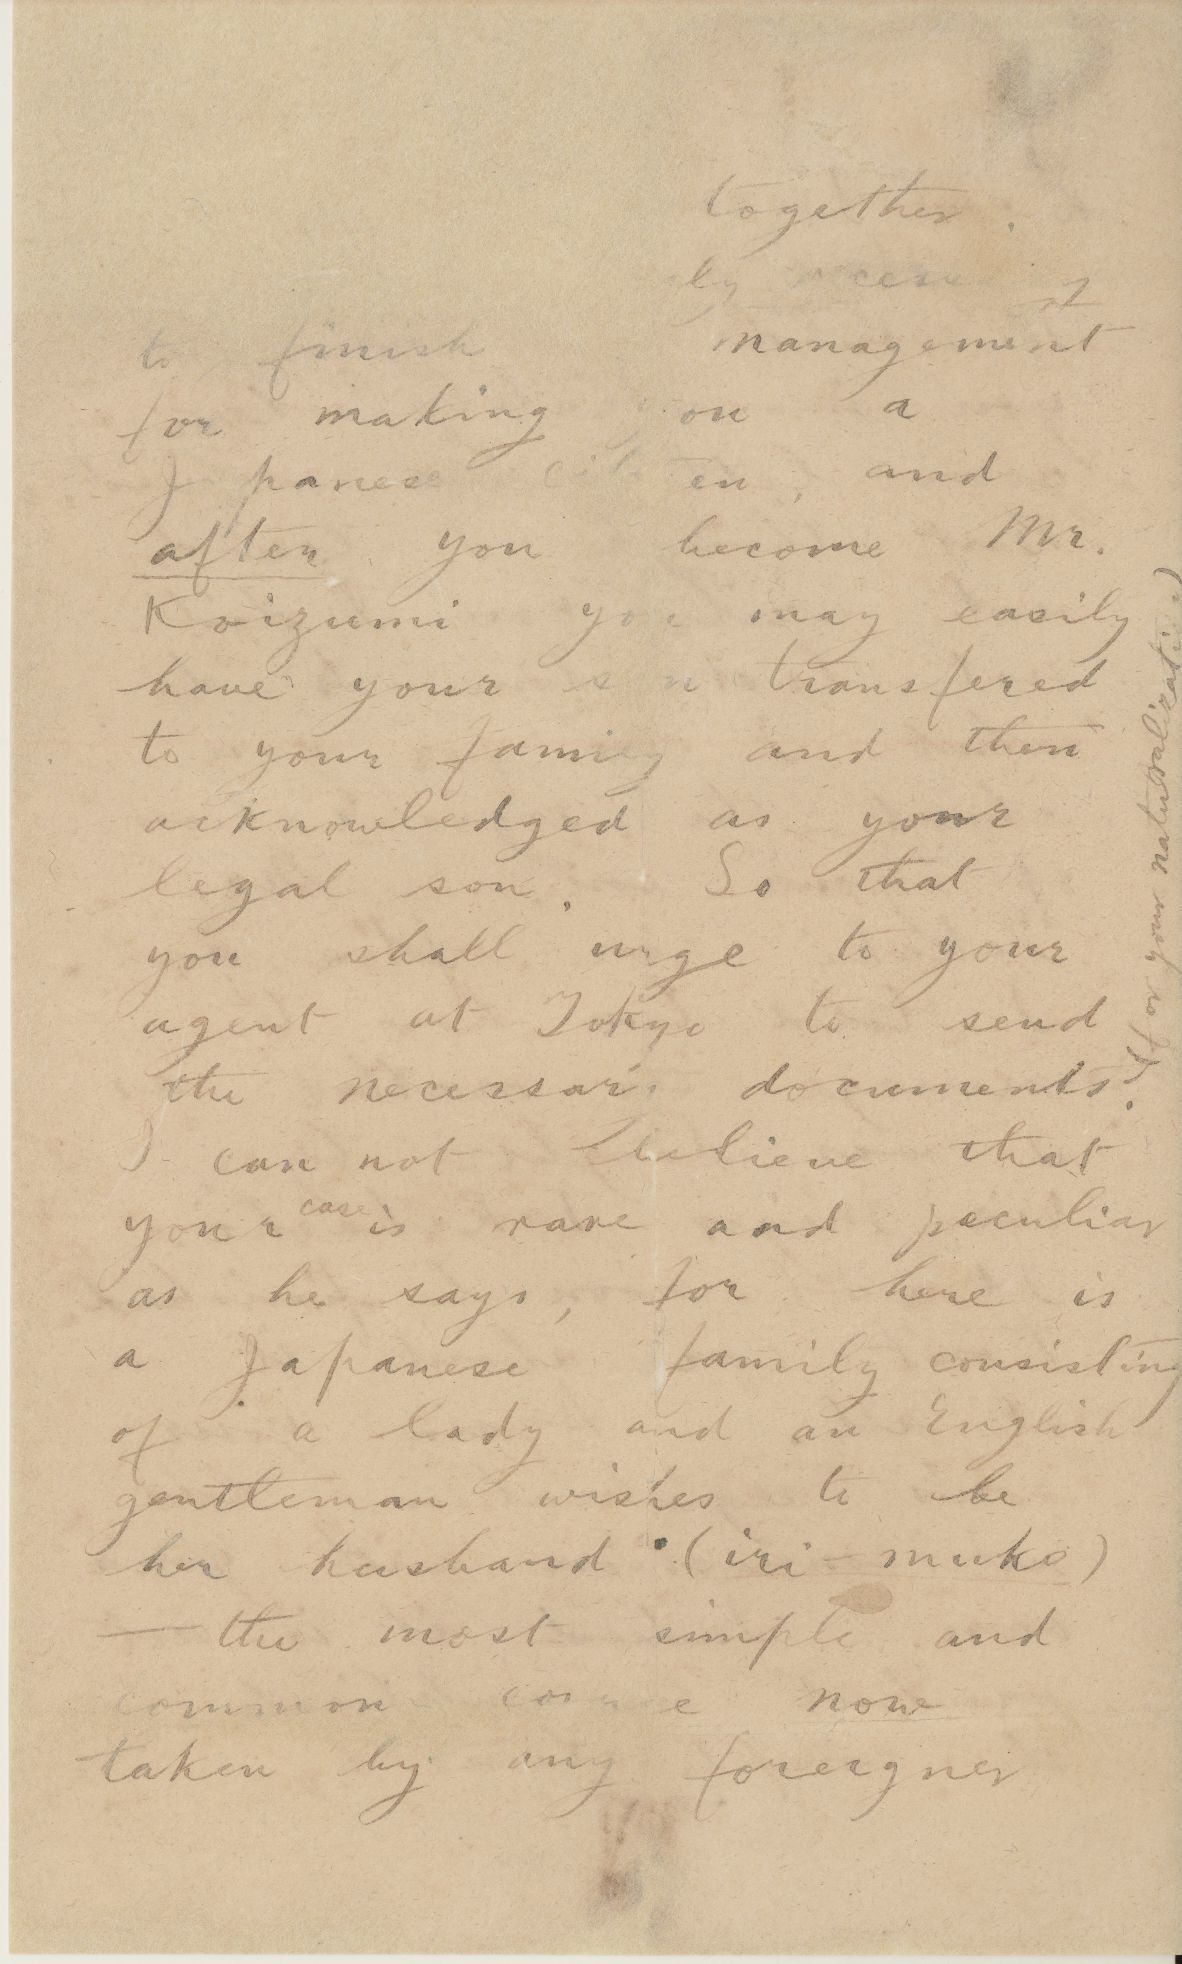 together.
by
to finish management
for making you a
Japanese citizen, and
after you become Mr.
Koizumi you may easily
have your son transfered
to your family and then
acknowledged as your
legal son. So that
you shall urge to your
agent at Tokyo to send
the necessary documents.
(for your naturalization)
I can not believe that
your case is rare and peculiar
as he says, for here is
a Japanese family consisting
of a lady and an English
gentleman wishes to be
her husband (iri-muko)
— the most simple and
common course now
taken by any foreigner